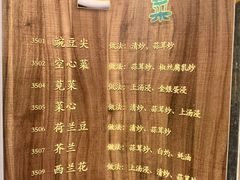 菜
3501 豌豆尖 做法：清炒、蒜茸炒
3502 空心菜 做法：蒜茸炒、椒丝腐乳炒
3504 苋菜 做法：上汤浸、金银蛋浸
3505 菜心 做法：清炒、蒜茸炒、上汤浸
3506 荷兰豆 做法：清炒、蒜茸炒
3507 芥兰 做法：蒜茸炒、白灼、蚝油
3509 西兰花 做法：上汤浸、清炒、蒜茸炒